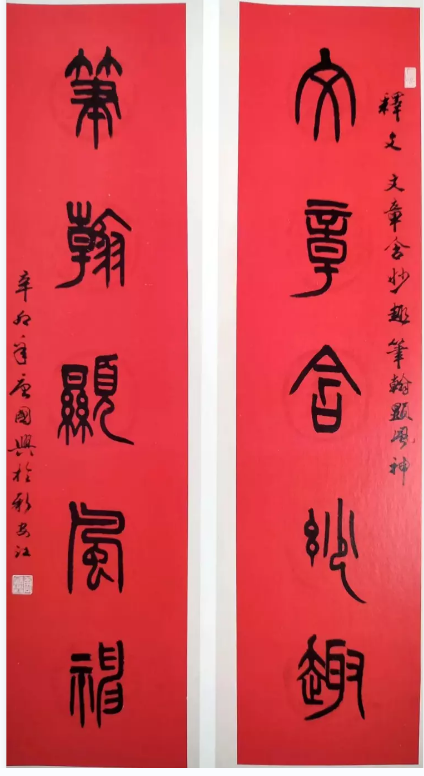 釋文 文章含妙趣筆翰顯風神
文章含妙趣
筆翰顯風神
辛卯年唐國興於新安江